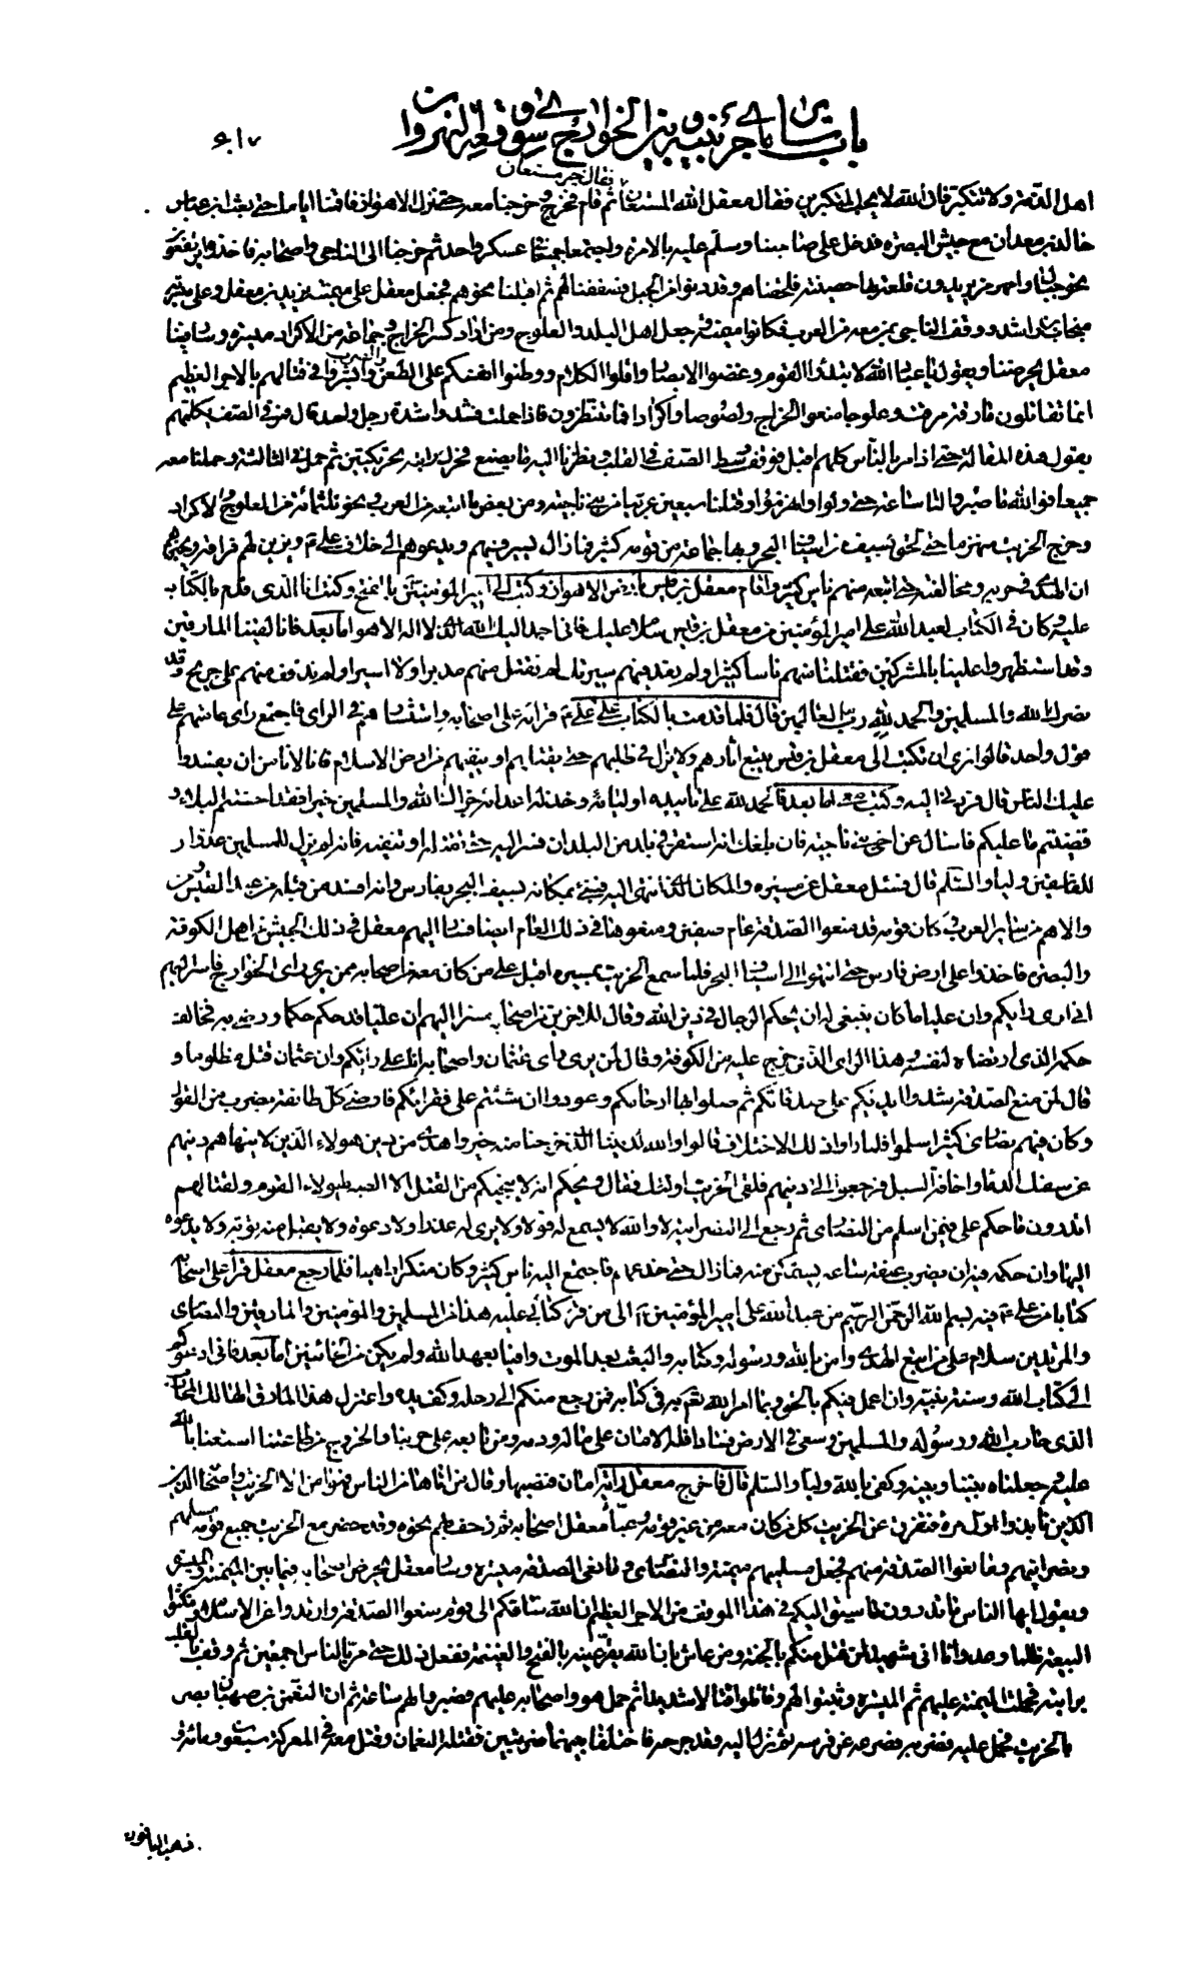 باب سائر ما جرى بينه وبين الخوارج سوى وقعة النهروان
٦١٧
فقال خير مستعان
اهل الذمة ولا تتكبر فان الله لا يحب المتكبرين فقال معقل الله المستعان ثم قام فخرج وخرجنا معه حتى نزل الاهواز فاقمنا اياما حتى بعث ابن عباس
خالد بن معدان مع جيش البصرة فدخل على صاحبنا وسلم عليه بالامرة واجتمعا جميعا في عسكر واحد ثم خرجنا الى الناجي واصحابه فاخذوا يرتفعون
نحو جبال رامهرمز يريدون قلعة بها حصينة فلحقناهم وقد دنوا من الجبل فصففنا لهم ثم اقبلنا نحوهم فجعل معقل على ميمنته يزيد بن معقل وعلى ميسرته
منجاب بن راشد ووقف الناجي بمن معه من العرب فكانوا ميمنة وجعل اهل البلد والعلوج ومن اراد كسر الخراج وجماعة من الاكراد ميسرة وسار فينا
معقل يحرضنا ويقول يا عباد الله لا تبدئوا القوم وغضوا الابصار واقلوا الكلام ووطنوا انفسكم على الطعن والضرب وابشروا في قتالهم بالاجر العظيم
انما تقاتلون مارقة مرقت وعلوجا منعوا الخراج ولصوصا واكرادا فما تنتظرون فاذا حملت فشدوا شدة رجل واحد قال فمر في الصف يكلمهم
يقول هذه المقالة حتى اذا مر بالناس كلهم اقبل فوقف وسط الصف في القلب ونظرنا اليه ما يصنع فحرك رايته تحريكتين ثم حمل في الثالثة وحملنا معه
جميعا فوالله ما صبروا لنا ساعة حتى ولوا وانهزموا وقتلنا سبعين عربيا من بني ناجية ومن بعض ما اتبعه من العرب ونحو ثلثمائة من العلوج والاكراد
وخرج الخريت منهزما حتى لحق بسيف من اسياف البحر وبها جماعة من قومه كثير فما زال يسير فيهم ويدعوهم الى خلاف علي ع ويزين لهم فراقه ويخبرهم
ان الهدى في حربه ومخالفته حتى اتبعه منهم ناس كثير واقام معقل بن قيس بارض الاهواز وكتب الى امير المؤمنين ع بالفتح وكنت انا الذي قدم بالكتاب
عليه وكان في الكتاب لعبد الله علي امير المؤمنين من معقل بن قيس سلام عليك فاني احمد اليك الله الذي لا اله الا هو اما بعد فانا لقينا المارقين
وقد استظهروا علينا بالمشركين فقتلنا منهم ناسا كثيرا ولم نعد فيهم سيرتك لم نقتل منهم مدبرا ولا اسيرا ولم نذفف منهم على جريح وقد
نصرك الله والمسلمين والحمد لله رب العالمين قال فلما قدمت بالكتاب على علي ع قراه على اصحابه واستشارهم في الراي فاجتمع راي عامتهم على
قول واحد قالوا نرى ان تكتب الى معقل بن قيس يتبع اثارهم ولا يزال في طلبهم حتى يقتلهم او ينفيهم من ارض الاسلام فانا لا نامن ان يفسدوا
عليك الناس قال فردني اليه وكتب معي اما بعد فالحمد لله على تاييده اوليائه وخذله اعدائه جزاك الله والمسلمين خيرا فقد احسنتم البلاء و
قضيتم ما عليكم فاسال عن اخي بني ناجية فان بلغك انه استقر في بلد من البلدان فسر اليه حتى تقتله او تنفيه فانه لم يزل للمسلمين عدوا و
للفاسقين وليا والسلام قال فسئل معقل عن مسيره والمكان الذي انتهى اليه فنبئ بمكانه بسيف البحر بفارس وانه افسد من قبله من عبد القيس
والاهم من سائر العرب وكان قومه قد منعوا الصدقة عام صفين ومنعوها في ذلك العام ايضا فسار اليهم معقل في ذلك الجيش من اهل الكوفة
والبصرة فاخذوا على ارض فارس حتى انتهوا الى اسياف البحر فلما سمع الخريت بمسيره اقبل على من كان معه من اصحابه ممن يرى راي الخوارج فاسر اليهم
اني ارى رايكم وان عليا ما كان ينبغي له ان يحكم الرجال في دين الله وقال للاخرين من اصحابه مسرا اليهم ان عليا قد حكم حكما ورضي به فخالف
حكمه الذي ارتضاه لنفسه وهذا الراي الذي خرج عليه من الكوفة وقال لمن يرى راي عثمان واصحابه انا على رايكم وان عثمان قتل مظلوما و
قال لمن منع الصدقة شدوا ايديكم على صدقاتكم ثم صلوا بها ارحامكم وعودوا ان شئتم على فقرائكم فارضى كل طائفة بضرب من القول
وكان فيهم نصارى كثير اسلموا فلما راوا ذلك الاختلاف قالوا والله لديننا الذي خرجنا منه خير واهدى من دين هؤلاء الذين لا ينهاهم دينهم
عن سفك الدماء واخافة السبل فرجعوا الى دينهم فلقي الخريت اولئك فقال ويحكم انه لا ينجيكم من القتل الا الصبر لهؤلاء القوم ولقتالهم
اتدرون ما حكم علي فيمن اسلم من النصارى ثم رجع الى النصرانية لا والله لا يسمع له قولا ولا يرى له عذرا ولا دعوة ولا يقبل منه توبة ولا يدعوه
اليها وان حكمه فيه ان يضرب عنقه ساعة يستمكن منه فما زال حتى خدعهم فاجتمع اليه ناس كثير وكان منكرا داهيا فلما رجع معقل قرا على اصحابه
كتابا من علي ع فيه بسم الله الرحمن الرحيم من عبد الله علي امير المؤمنين ع الى من قرئ كتابي عليه هذا من المسلمين والمؤمنين والمارقين والنصارى
والمرتدين سلام على من اتبع الهدى وامن بالله ورسوله وكتابه والبعث بعد الموت وافيا بعهد الله ولم يكن من الخائنين اما بعد فاني ادعوكم
الى كتاب الله وسنة نبيه وان اعمل فيكم بالحق وبما امر الله تع به في كتابه فمن رجع منكم الى رحله وكف يده واعتزل هذا المارق الهالك المحارب
الذي حارب الله ورسوله والمسلمين وسعى في الارض فسادا فله الامان على ماله ودمه ومن تابعه على حربنا والخروج من طاعتنا استعنا بالله
عليه وجعلناه بيننا وبينه وكفى بالله وليا والسلم قال فاخرج معقل راية امان فنصبها وقال من اتاها من الناس فهو امن الا الخريت واصحابه
الذين نابذوا اول مرة فتفرق عن الخريت كل من كان معه من غير قومه وعبا معقل اصحابه ثم زحف بهم نحوه وقد حضر مع الخريت جميع قومه مسلمهم
ونصرانيهم ومانعوا الصدقة منهم فجعل مسلميهم ميمنة والنصارى ومانعي الصدقة ميسرة وسار معقل يحرض اصحابه فيما بين الميمنة والميسرة
ويقول ايها الناس ما تدرون ما سيق اليكم في هذا الموقف من الاجر العظيم ان الله ساقكم الى قوم منعوا الصدقة وارتدوا عن الاسلام ونكثوا
البيعة ظلما وعدوانا اني شهيد لمن قتل منكم بالجنة ومن عاش بان الله يقر عينه بالفتح والغنيمة ففعل ذلك حتى مر بالناس اجمعين ثم وقف بالقلب
برايته فحملت الميمنة عليهم ثم الميسرة وثبتوا لهم وقاتلوا قتالا شديدا ثم حمل هو واصحابه عليهم فصبروا لهم ساعة ثم ان النعمن بن صهبان بصر
بالخريت فحمل عليه فضربه فصرعه عن فرسه ثم نزل اليه وقد جرحه فاختلفا بينهما ضربتين فقتله النعمان وقتل معه في المعركة سبعون ومائة و
ذهب الباقون